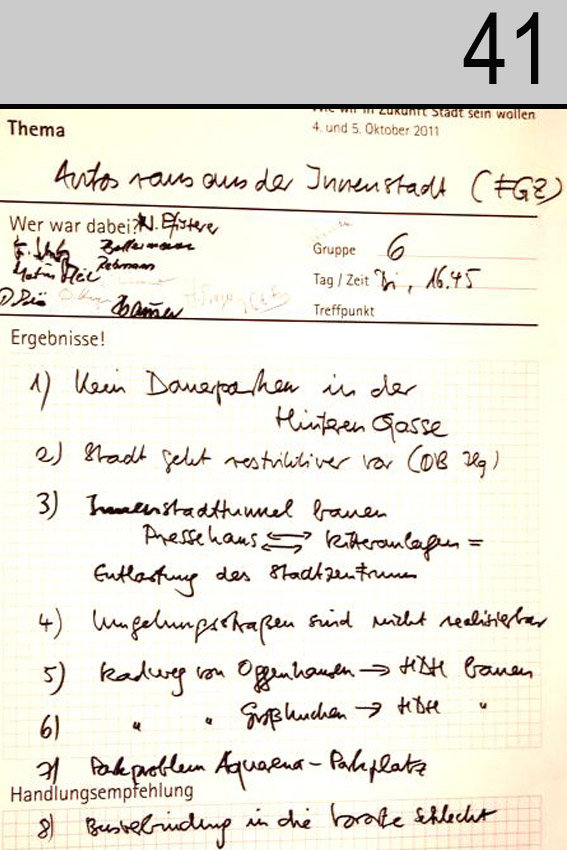 41
Wie wir in Zukunft Stadt sein wollen
Thema
4. und 5. Oktober 2011
Autos raus aus der Innenstadt (FGZ)
Wer war dabei? N. Pfisterer
Bettermann
Rehmann
Bauer
Gruppe 6
Tag / Zeit Di, 16.45
Treffpunkt
Ergebnisse!
1) Kein Dauerparken in der
Hinteren Gasse
2) Stadt geht restriktiver vor (OB Ilg)
3) Innenstadttunnel bauen
Pressehaus ⇆ Ritteranlagen =
Entlastung des Stadtzentrums
4) Umgehungsstraßen sind nicht realisierbar
5) Radweg von Oggenhausen → HDH bauen
6) " " Großkuchen → HDH "
7) Parkproblem Aquarena-Parkplatz
Handlungsempfehlung
8) Busverbindung in die Vororte schlecht